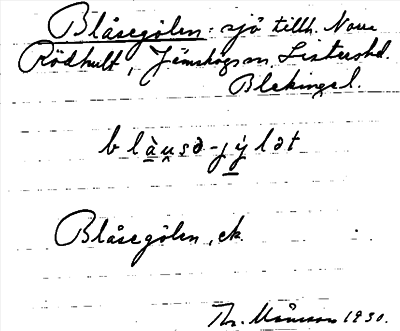 Blåsegölen - sjö tillh. Norra
Rödhult, Jämshögs sn, Listers hd.
Blekinge l.
blàusə-jýlət
Blåsegölen, ek.
Th. Månsson 1930.